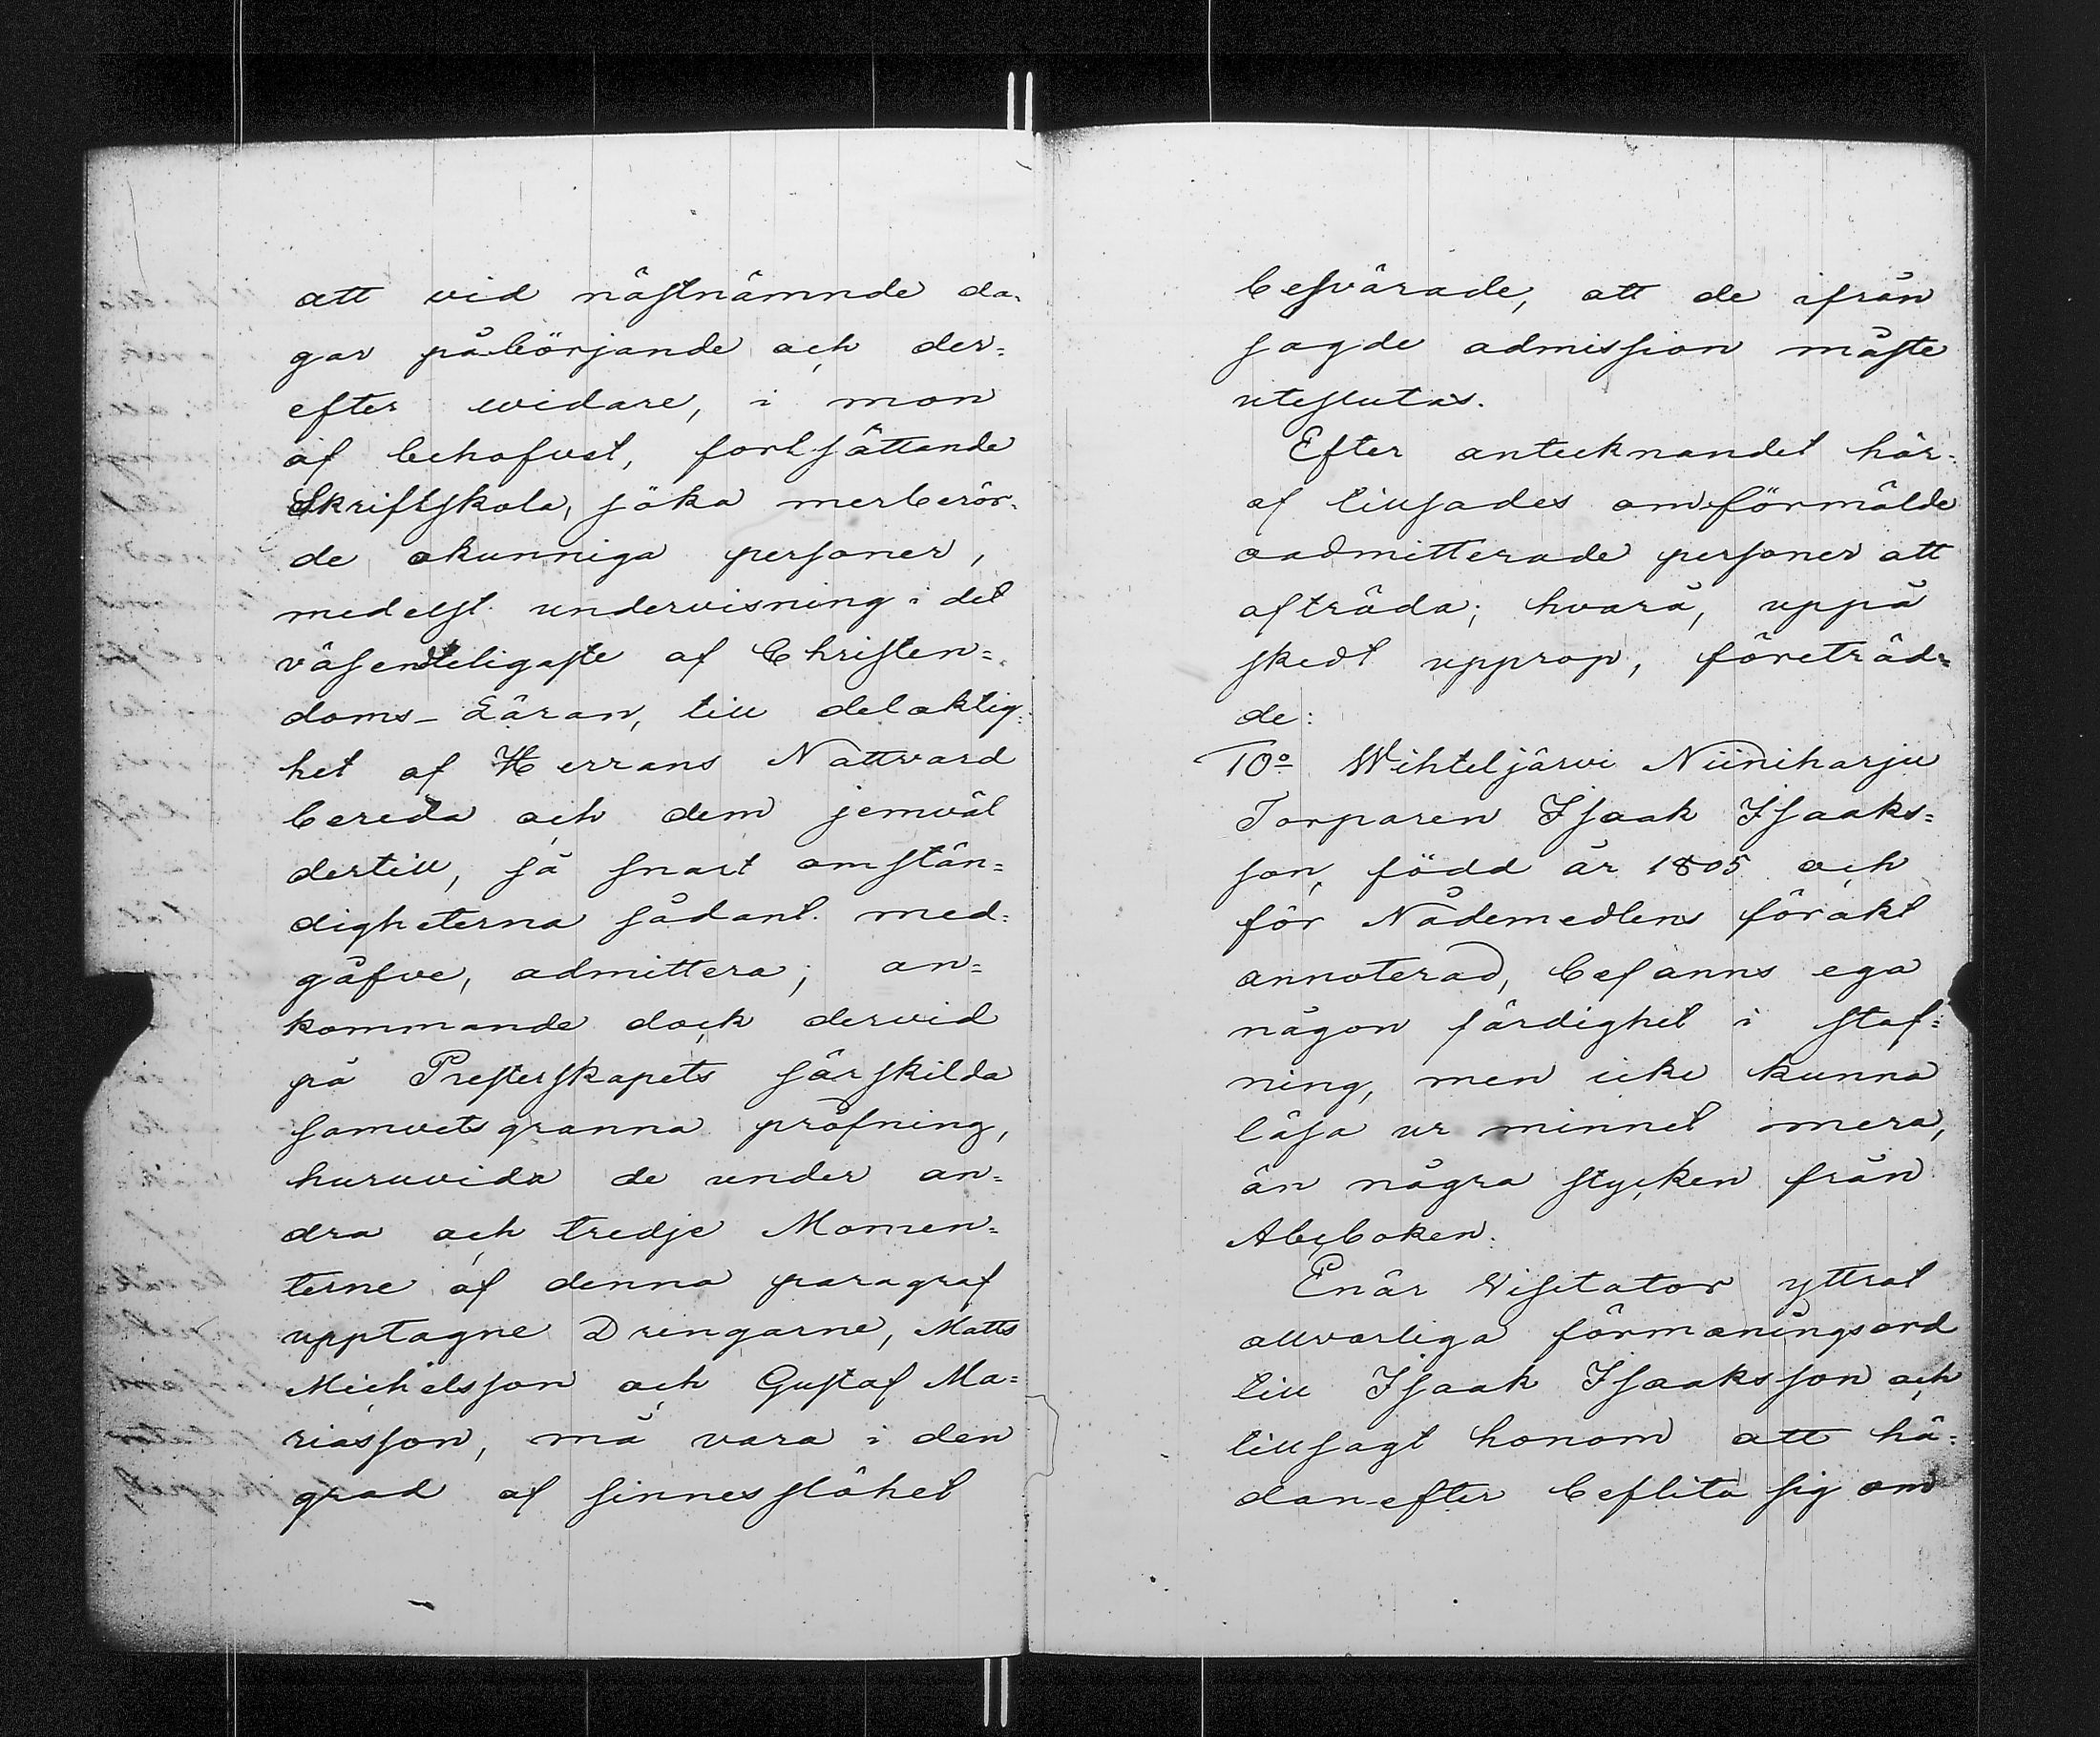 att vid nästnämnde da-
gar påbörjande och der=
efter widare, i mon
af behofvet, fortsättande
Skriftskola, söka merberör-
de okunniga personer,
medelst undervisning i det
väsendteligaste af Christen=
doms-Läran, till delaktig=
het af Herrans Nattvard
bereda och dem jemväl
dertill, så snart omstän=
digheterna sådant med=
gåfve, admittera; an=
kommande dock dervid
på Presterskapets särskilda
samvetsgranna pröfning,
huruvida de under an=
dra och tredje Momen=
terne af denna paragraf
upptagne Drengarne, Matts
Michelsson och Gustaf Ma=
riasson, må vara i den
grad af sinnesslöhet
besvärade, att de ifrån
sagde admission måste
uteslutas.
Efter antecknandet här=
af tillsades omförmälde
oadmitterade personer att
afträda; hvarå, uppå
skedt upprop, företräd=
de:
10º Wihteljärvi Niiniharju
Torparen Isaak Isaaks=
son, född år 1805 och
för Nådemedlens förakt
annoterad, befanns ega
någon färdighet i staf=
ning, men icke kunna
läsa ur minnet mera,
än några stycken från
Abcboken.
Enär Visitator yttrat
allvarliga förmaningsord
till Isaak Isaaksson och
tillsagt honom att hä=
danefter beflita sig om